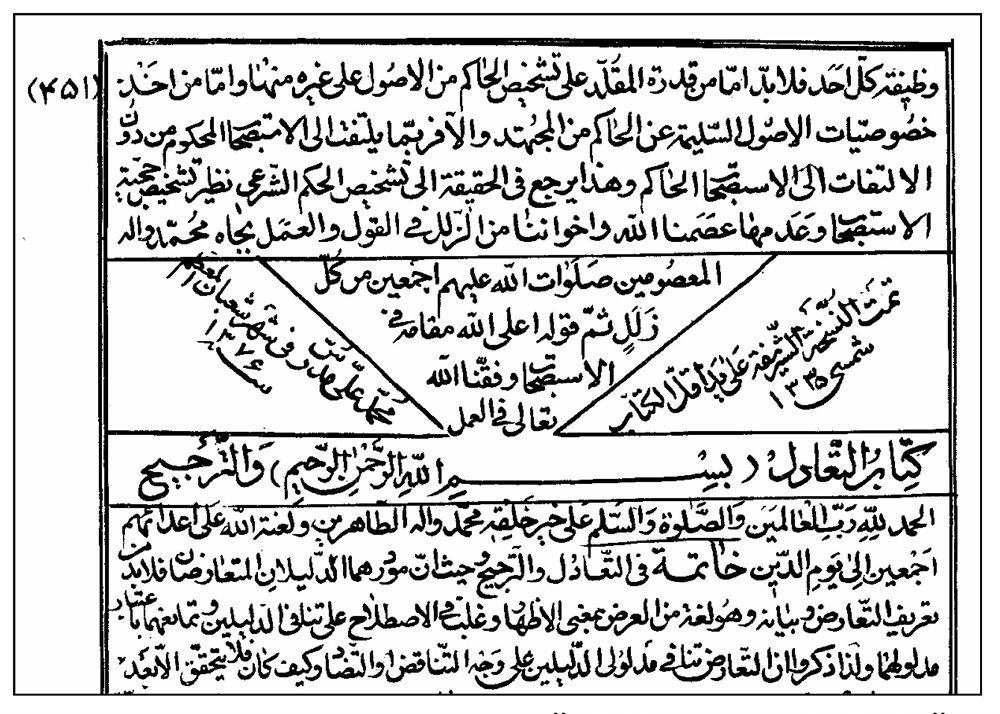 (۴۵۱)
وظيفة كلّ احد فلا بدّ امّا من قدرة المقلّد على تشخيص الحاكم من الاصول على غيره منها وامّا من اخذ
خصوصيّات الاصول السّليمة عن الحاكم من المجتهد والّا فربّما يلتفت الى الاستصحاب المحكوم من دون
الالتفات الى الاستصحاب الحاكم وهذا يرجع فى الحقيقة الى تشخيص الحكم الشّرعى نظير تشخيص حجّية
الاستصحاب وعدمها عصمنا الله واخواننا من الزّلل فى القول والعمل بجاه محمّد واله
المعصومين صلوات الله عليهم اجمعين من كلّ
زلل ثمّ قوله اعلى الله مقامه فى
الاستصحاب وفقّنا الله
تعالى فى العمل
تمت النسخة الشريفة على يد اقل الكتاب
شمسى ۱۳۳۵
محمّد على فى شهر شعبان المعظم
سنة ۱۳۷۶
كتاب التّعادل (بسم الله الرّحمن الرّحيم) والتّرجيح
الحمد لله ربّ العالمين والصّلوة والسّلم على خير خلقه محمّد واله الطّاهرين ولعنة الله على اعدائهم
اجمعين الى يوم الدّين خاتمة فى التّعادل والتّرجيح وحيث انّ موردهما الدّليلان المتعارضان فلا بدّ من
تعريف التّعارض وبيانه وهو لغة من العرض بمعنى الاظهار وغلب فى الاصطلاح على تنافى الدّليلين وتمانعهما باعتبار
مدلولهما ولذا ذكروا ان التّعارض تنافى مدلولى الدّليلين على وجه التّناقض او التّضاد وكيف كان فلا يتحقق الّا بعد